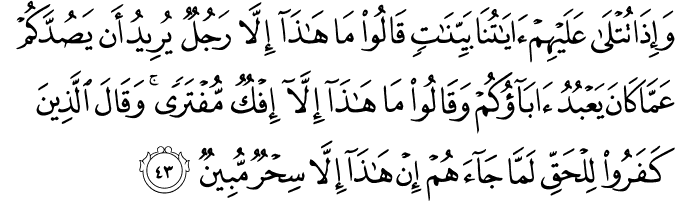 وَإِذَا تُتْلَىٰ عَلَيْهِمْ ءَايَـٰتُنَا بَيِّنَـٰتٍ قَالُوا۟ مَا هَـٰذَآ إِلَّا رَجُلٌ يُرِيدُ أَن يَصُدَّكُمْ
عَمَّا كَانَ يَعْبُدُ ءَابَآؤُكُمْ وَقَالُوا۟ مَا هَـٰذَآ إِلَّآ إِفْكٌ مُّفْتَرًى ۚ وَقَالَ ٱلَّذِينَ
كَفَرُوا۟ لِلْحَقِّ لَمَّا جَآءَهُمْ إِنْ هَـٰذَآ إِلَّا سِحْرٌ مُّبِينٌ ٤٣